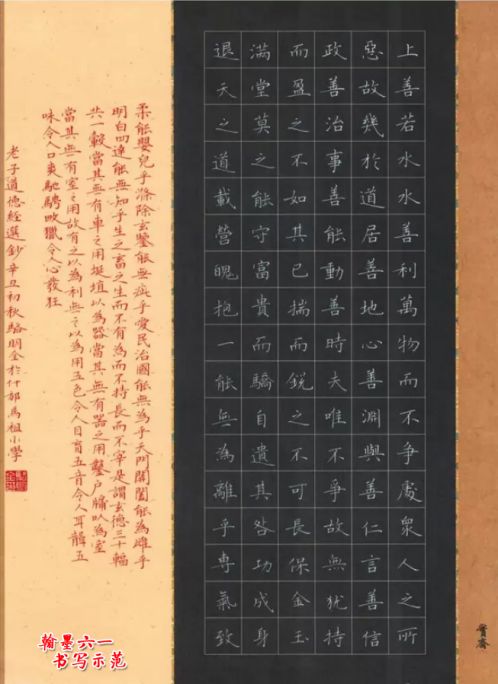 上善若水水善利萬物而不争處衆人之所
惡故幾於道居善地心善淵與善仁言善信
政善治事善能動善時夫唯不争故無犹持
而盈之不如其已揣而銳之不可長保金玉
滿堂莫之能守富貴而驕自遺其咎功成身
退天之道載營魄抱一能無為離乎專氣致
柔能嬰兒乎滌除玄鑒能無疵乎愛民治國能無為乎天門開闔能為雌乎
明白四達能無知乎生之畜之生而不有為而不持長而不宰是謂玄德三十輻
共一轂當其無有車之用埏埴以為器當其無有器之用鑿户牖以為室
當其無有室之用故有之以為利無之以為用五色令人目盲五音令人耳聾五
味令人口爽馳騁畋獵令人心發狂
老子道德經選鈔辛丑初秋駱明金於什邡馬祖小學
翰墨六一
书写示范